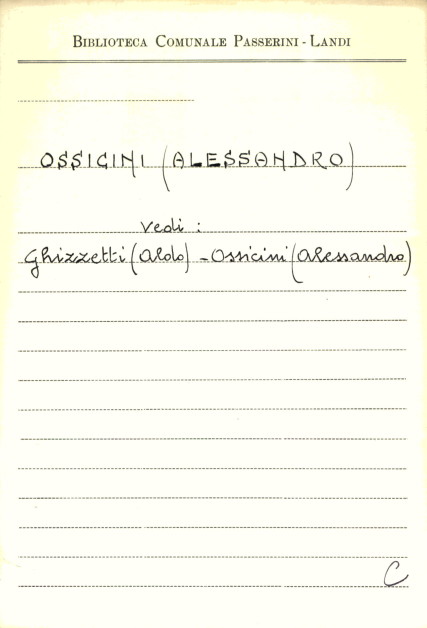 BIBLIOTECA COMUNALE PASSERINI - LANDI
OSSICINI (ALESSANDRO)
Vedi :
Ghizzetti (Aldo) - Ossicini (Alessandro)
C